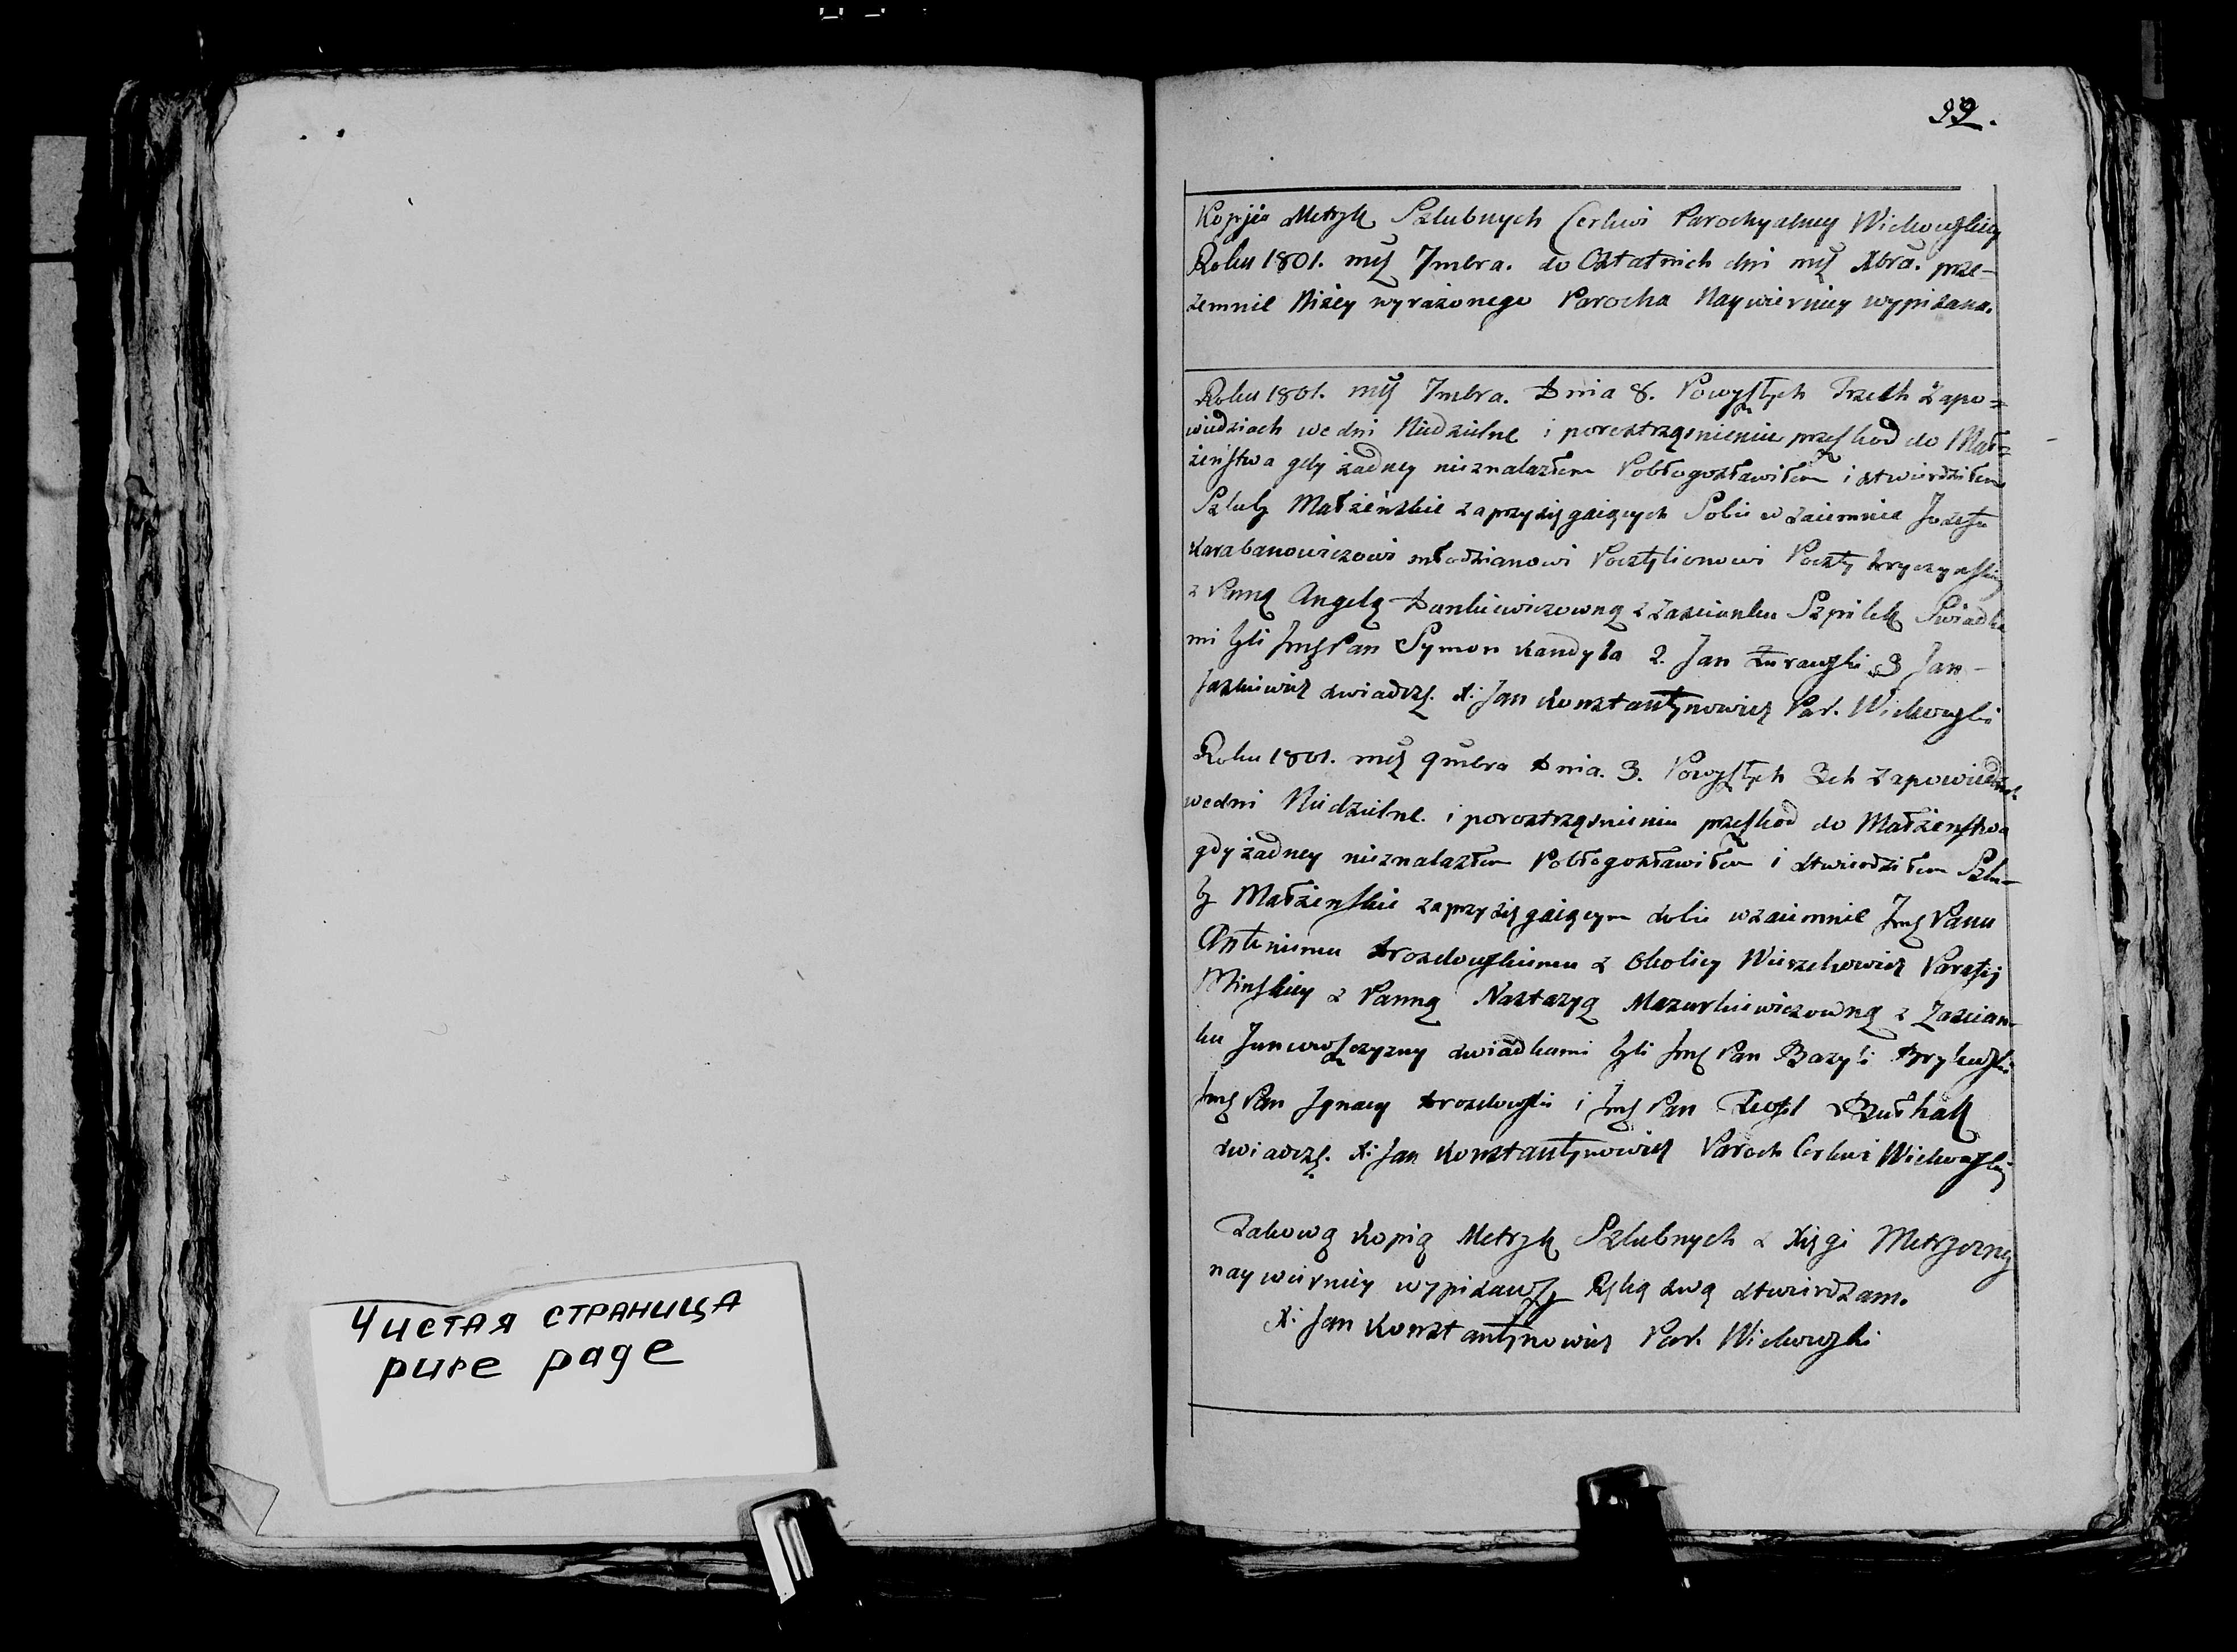 99.
Kopija Metryk Szlubnych Cerkwi Parochyalney Wickowskiey
Roku 1801. msca 7mbra. do Ostatnich dni msca Xbra. prze-
zemnie Niżey wyrażonego Parocha Naywierniey wypisana.
Roku 1801. msca 7mbra. Dnia 8. Powyszłych Trzech Zapo=
wiedziach we dni Niedzielne i poroztrząsnieniu przeszkod do Mał=
żeństwa gdy żadney nieznalazłem Pobłogosławiłem i stwierdziłem
Szluby Małżeńskie zaprzysięgaiących Sobie wzaiemnie Jozefu
Karabanowiczowi młodzianowi Pocztylionowi Poczty
z Panną Angelą Dankiewiczowną z Zascianku Szpilek Swiadka
mi byli Jmsć Pan Symon Kandyba 2. Jan Żurawski 3 Jan
Jaskiewicz swiadczę. X: Jan Konstantynowicz Par. Wickowski
Roku 1801. msca 9mbra Dnia. 3. Powyszłych 3ch Zapowiedziach
wedni Niedzielne. i poroztrząsnieniu przeszkod do Małżenstwa
gdy żadney nieznalazłem Pobłogosławiłem i stwierdziłem Szlu-
by Małżenskie zaprzysięgaiącym sobie wzaiemnie Jmsć Panu
Antoniemu Drozdowskiemu z Okolicy Wieszchowicz Parafij
Minskiey z Panną Nastazyą Mazurkiewiczowną z Zascian-
ku swiadkami byli Jmsć Pan Bazyli
Jmsć Pan Jgnacy Drozdowski i Jmsć Pan
swiadczę. X: Jan Konstantynowicz Paroch Cerkwi Wickowskiey
Takową Kopią Metryk Szlubnych z Xięgi Metryczney
naywierniey wypisawszy Ręką swą stwierdzam.
X: Jan Konstantynowicz Par. Wickowski
Чистая страница
pure page